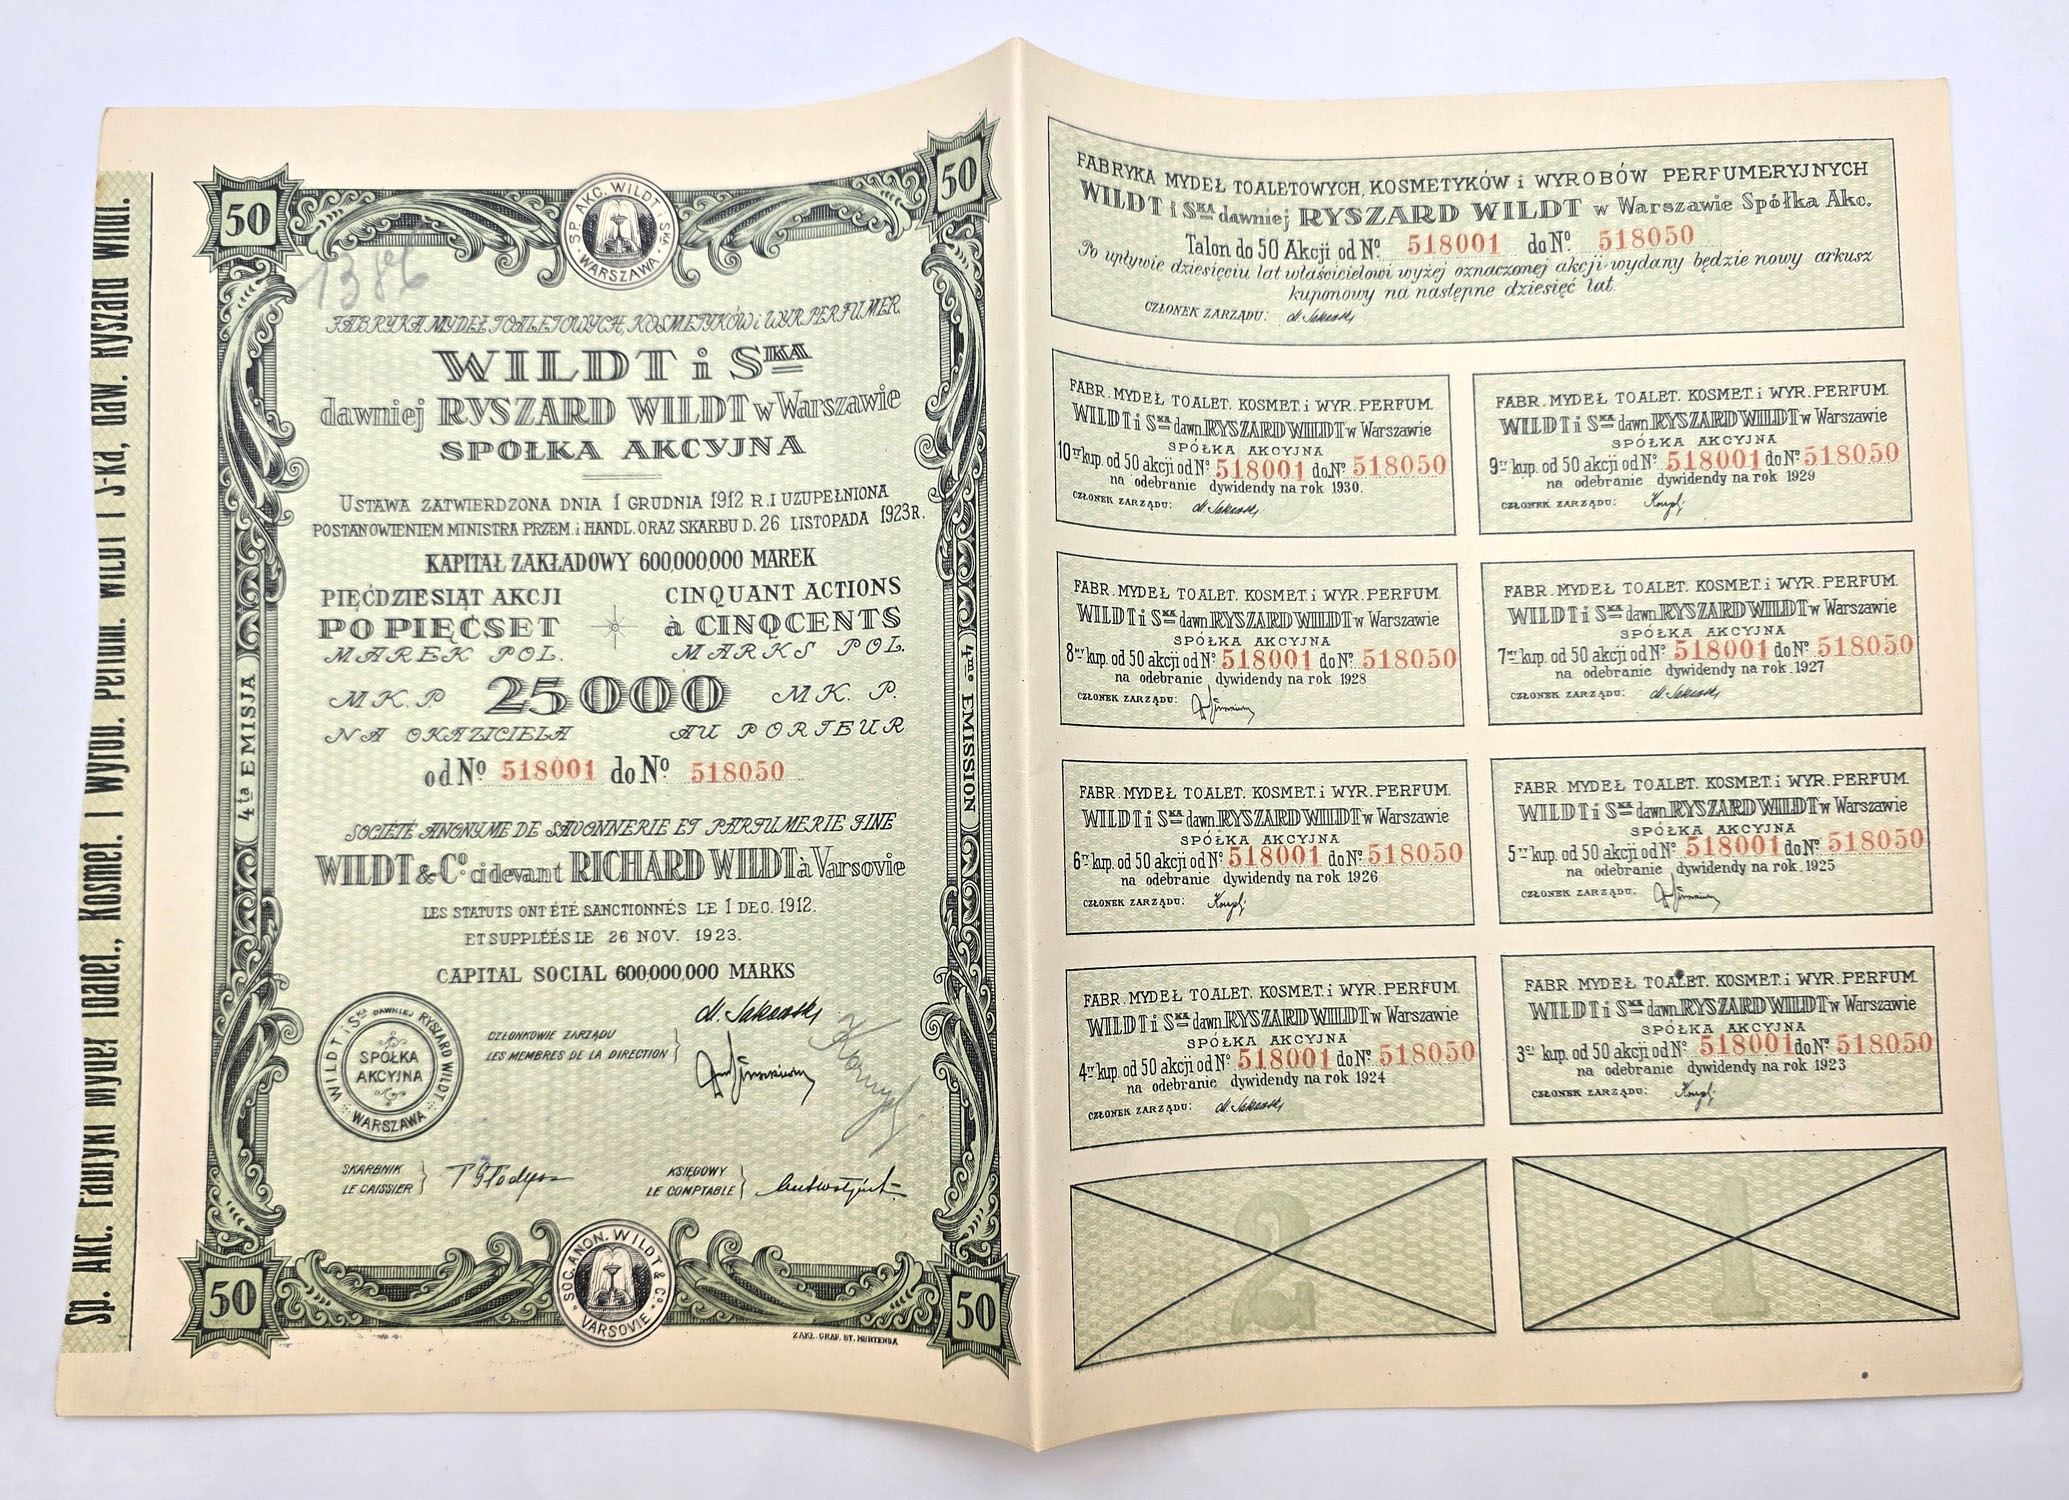 Sp. Akc. Fabryki Mydeł Toalet., Kosmet. i Wyrob. Perfum. WILDT i S-ka, daw. Ryszard Wildt.
50
50
SP. AKC. WILDT i SKA
WARSZAWA
1386
FABRYKA MYDEŁ TOALETOWYCH, KOSMETYKÓW i WYR. PERFUMER.
WILDT i SKA
dawniej RYSZARD WILDT w Warszawie
SPÓŁKA AKCYJNA
USTAWA ZATWIERDZONA DNIA 1 GRUDNIA 1912 R. I UZUPEŁNIONA
POSTANOWIENIEM MINISTRA PRZEM. i HANDL. ORAZ SKARBU D. 26 LISTOPADA 1923 R.
KAPITAŁ ZAKŁADOWY 600,000,000 MAREK
PIĘĆDZIESIĄT AKCJI
PO PIĘĆSET
MAREK POL.
CINQUANT ACTIONS
à CINQCENTS
MARKS POL.
MK. P 25000 MK. P.
NA OKAZICIELA AU PORTEUR
od № 518001 do № 518050
4ta EMISJA
4me EMISSION
SOCIÉTÉ ANONYME DE SAVONNERIE ET PARFUMERIE FINE
WILDT & Co. ci devant RICHARD WILDT à Varsovie
LES STATUTS ONT ÉTÉ SANCTIONNÉS LE 1 DEC. 1912.
ET SUPPLÉÉS LE 26 NOV. 1923.
CAPITAL SOCIAL 600,000,000 MARKS
WILDT i SKA DAWNIEJ RYSZARD WILDT
SPÓŁKA
AKCYJNA
WARSZAWA
CZŁONKOWIE ZARZĄDU
LES MEMBRES DE LA DIRECTION
SKARBNIK
LE CAISSIER
KSIĘGOWY
LE COMPTABLE
50
50
SOC. ANON. WILDT & Co.
VARSOVIE
ZAKŁ. GRAF. ST. MERTENSA
FABRYKA MYDEŁ TOALETOWYCH, KOSMETYKÓW i WYROBÓW PERFUMERYJNYCH
WILDT i SKA dawniej RYSZARD WILDT w Warszawie Spółka Akc.
Talon do 50 Akcji od №. 518001 do №. 518050
Po upływie dziesięciu lat właścicielowi wyżej oznaczonej akcji wydany będzie nowy arkusz
kuponowy na następne dziesięć lat.
CZŁONEK ZARZĄDU:
FABR. MYDEŁ TOALET. KOSMET. i WYR. PERFUM.
WILDT i SKA dawn. RYSZARD WILDT w Warszawie
SPÓŁKA AKCYJNA
10ty kup. od 50 akcji od №. 518001 do №. 518050
na odebranie dywidendy na rok 1930.
CZŁONEK ZARZĄDU:
FABR. MYDEŁ TOALET. KOSMET. i WYR. PERFUM.
WILDT i SKA dawn. RYSZARD WILDT w Warszawie
SPÓŁKA AKCYJNA
9ty kup. od 50 akcji od №. 518001 do №. 518050
na odebranie dywidendy na rok 1929
CZŁONEK ZARZĄDU:
FABR. MYDEŁ TOALET. KOSMET. i WYR. PERFUM.
WILDT i SKA dawn. RYSZARD WILDT w Warszawie
SPÓŁKA AKCYJNA
8my kup. od 50 akcji od №. 518001 do №. 518050
na odebranie dywidendy na rok 1928
CZŁONEK ZARZĄDU:
FABR. MYDEŁ TOALET. KOSMET. i WYR. PERFUM.
WILDT i SKA dawn. RYSZARD WILDT w Warszawie
SPÓŁKA AKCYJNA
7my kup. od 50 akcji od №. 518001 do №. 518050
na odebranie dywidendy na rok 1927
CZŁONEK ZARZĄDU:
FABR. MYDEŁ TOALET. KOSMET. i WYR. PERFUM.
WILDT i SKA dawn. RYSZARD WILDT w Warszawie
SPÓŁKA AKCYJNA
6ty kup. od 50 akcji od №. 518001 do №. 518050
na odebranie dywidendy na rok 1926
CZŁONEK ZARZĄDU:
FABR. MYDEŁ TOALET. KOSMET. i WYR. PERFUM.
WILDT i SKA dawn. RYSZARD WILDT w Warszawie
SPÓŁKA AKCYJNA
5ty kup. od 50 akcji od №. 518001 do №. 518050
na odebranie dywidendy na rok 1925
CZŁONEK ZARZĄDU:
FABR. MYDEŁ TOALET. KOSMET. i WYR. PERFUM.
WILDT i SKA dawn. RYSZARD WILDT w Warszawie
SPÓŁKA AKCYJNA
4ty kup. od 50 akcji od №. 518001 do №. 518050
na odebranie dywidendy na rok 1924
CZŁONEK ZARZĄDU:
FABR. MYDEŁ TOALET. KOSMET. i WYR. PERFUM.
WILDT i SKA dawn. RYSZARD WILDT w Warszawie
SPÓŁKA AKCYJNA
3ci kup. od 50 akcji od №. 518001 do №. 518050
na odebranie dywidendy na rok 1923
CZŁONEK ZARZĄDU:
2
1